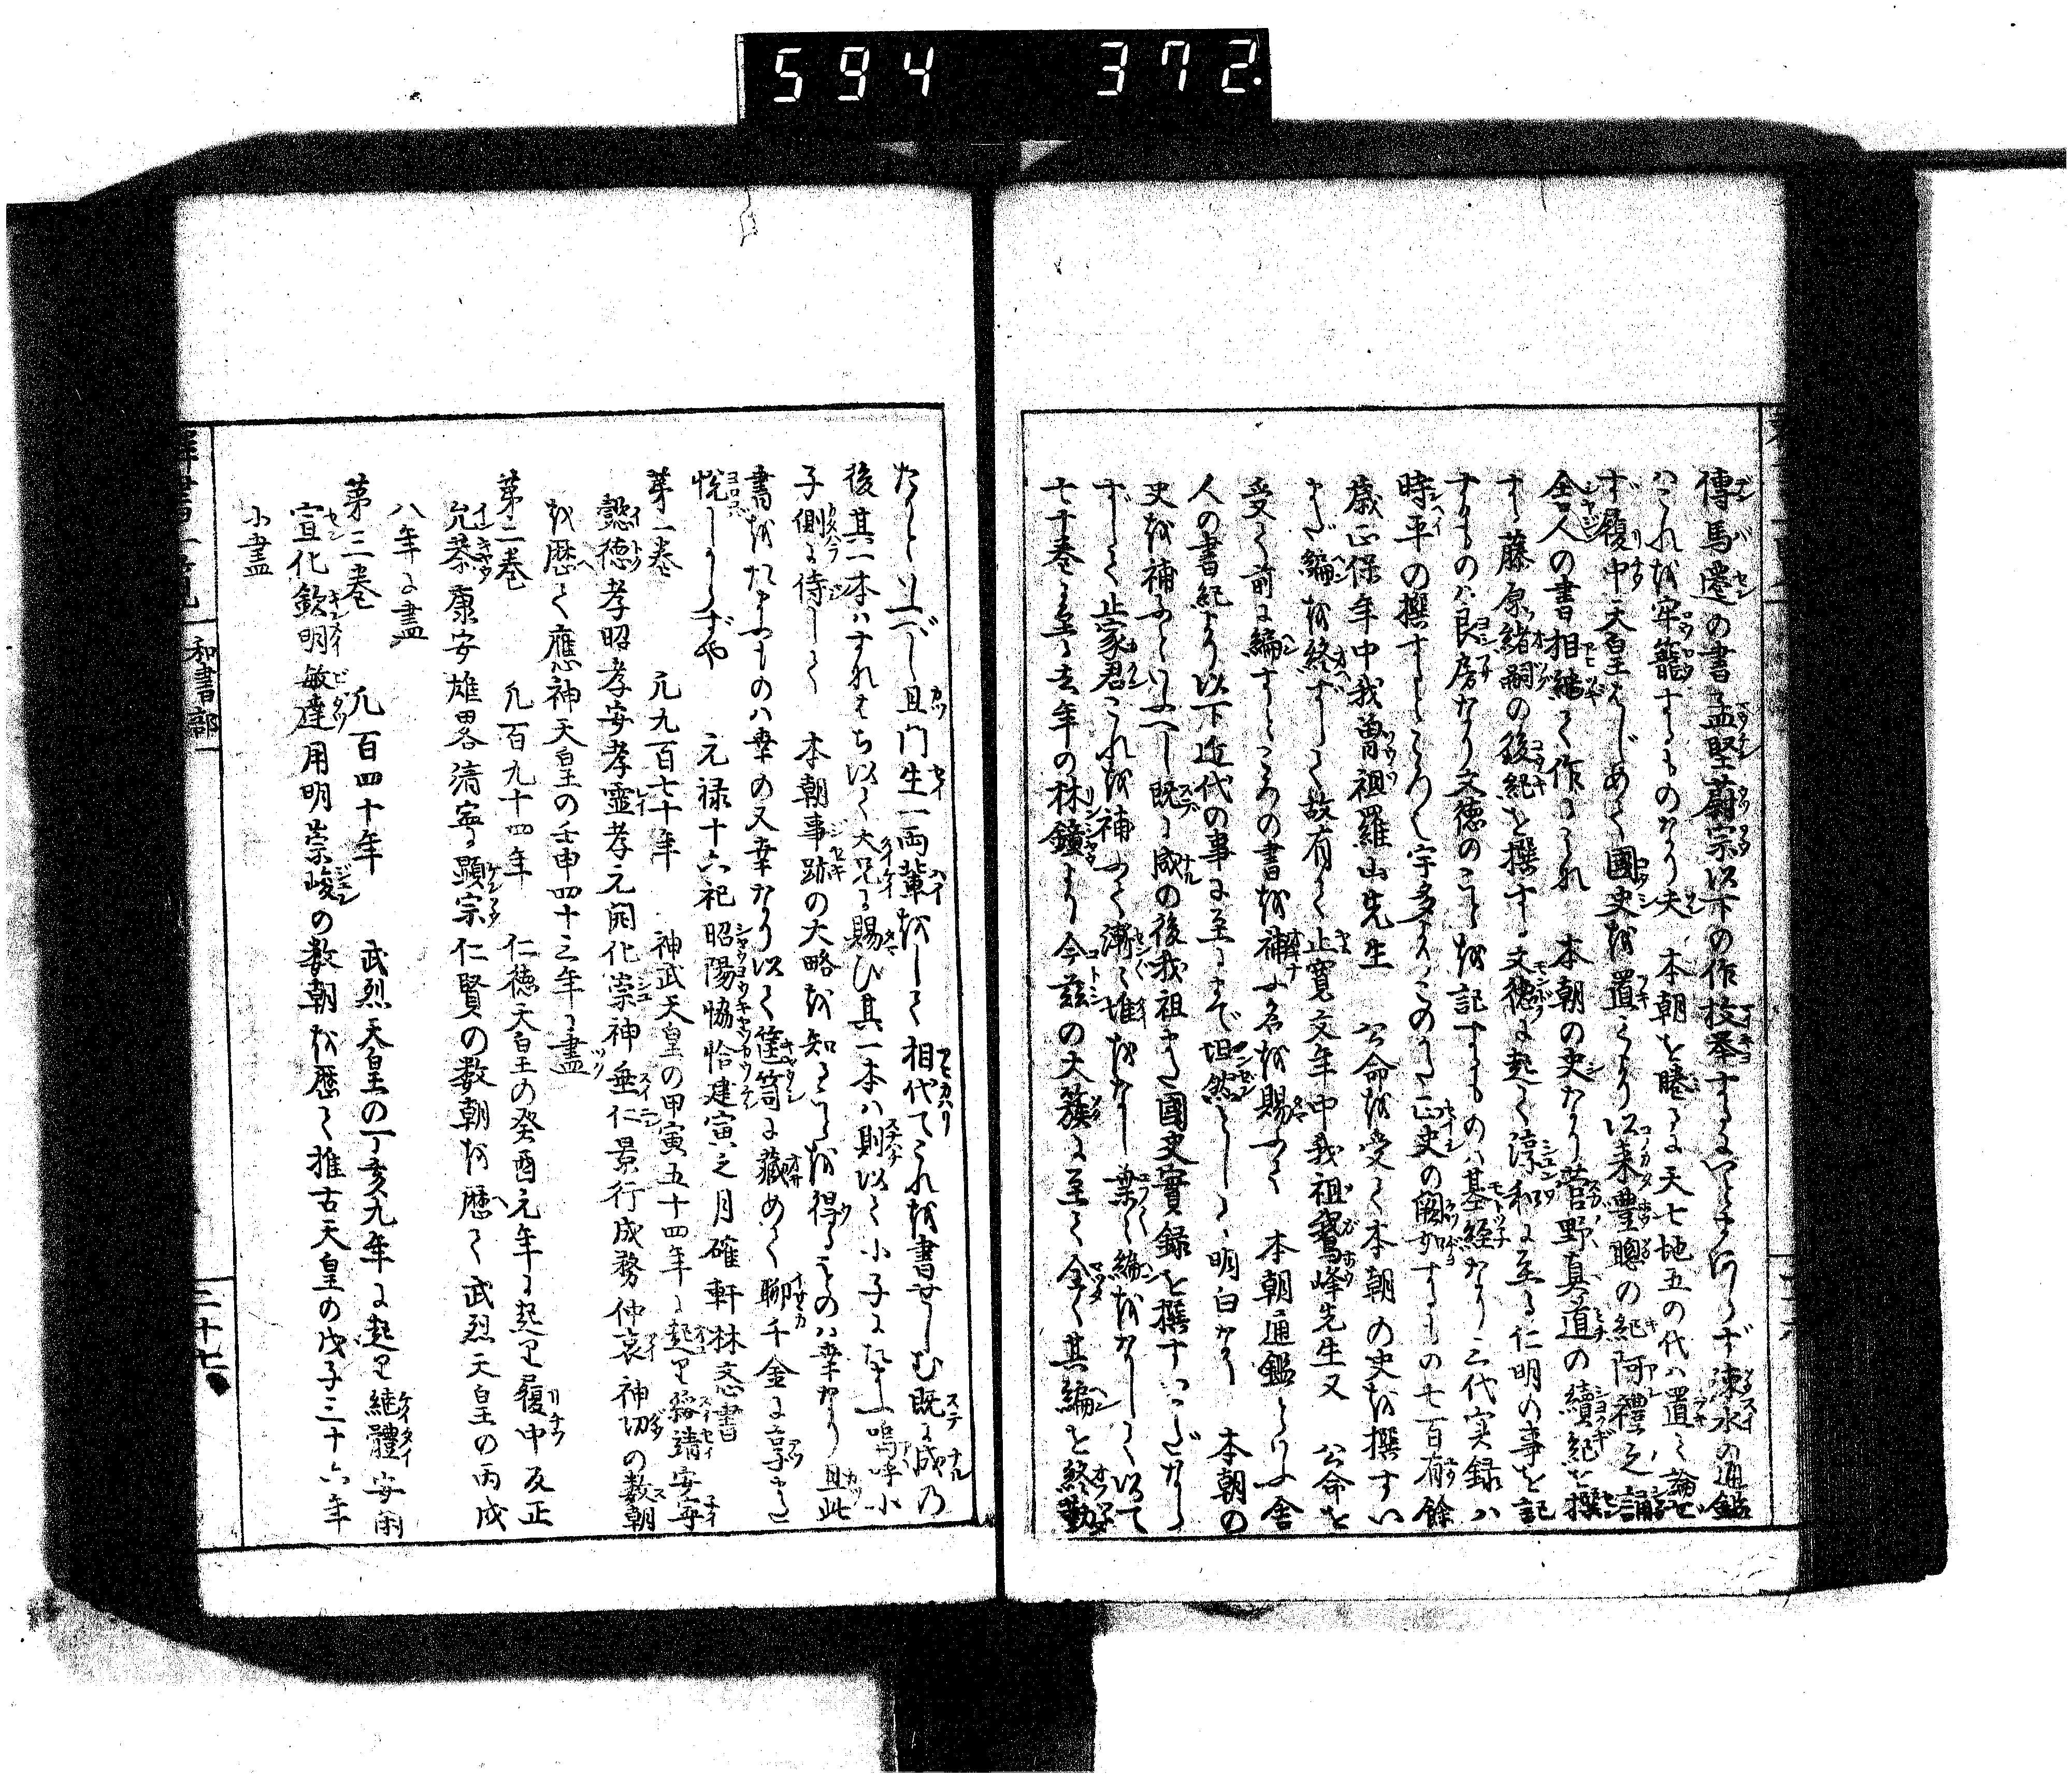 594 372.
傳馬遷の書孟堅蔚宗以下の作枚挙するにいとまあらず涑水の通鑑
ハこれを牢籠するものなり夫 本朝を睠るに天七地五の代ハ置て論ぜ
ず履中天皇はじめて國史を置しより以来豊聰の紀阿禮之誦
舎人の書相繼て作にこれ 本朝の史なり菅野真道の續紀を撰
す藤原緒嗣の後紀を撰する文徳に起て淳和に至る仁明の事を記
するものハ良房なり文徳のことを記するものハ基経なり三代実録ハ
時平の撰するところ宇多よりこのかた正史の闕如するもの七百有餘
歳正保年中我曽祖羅山先生 公命を受て本朝の史を撰すい
まだ編を終ずして故有て止寛文年中我祖鵞峰先生又 公命を
受て前に編するところの書を補ふ名を賜ふて 本朝通鑑といふ舎
人の書紀より以下近代の事に至るまで坦然として明白なり 本朝の
史を補ふといふべし既に成の後我祖また國史實録を撰すいまだなら
ずして止家君これを補ふて漸々堆をなし業々編をなして以て
七十巻に至る去年の林鐘より今茲の大簇に至て全く其編を終勤
たりといふべし且門生一両輩をして相代てこれを書せしむ既に成乃
後其一本ハすなハち以て大兄に賜び其一本ハ則以て小子にたまふ嗚呼小
子側に侍して 本朝事跡の大略を知ことを得るものハ幸なり且此
書をたまふものハ幸の又幸なり以て篋笥に藏めて聊千金に享また
悦しからずや 元禄十六祀昭陽協洽建寅之月確軒林愨書
第一巻 凡九百七十年 神武天皇の甲寅五十四年に起り綏靖安寧
懿徳孝昭孝安孝靈孝元開化崇神垂仁景行成務仲哀神功の数朝
を歴て應神天皇の壬申四十三年に盡
第二巻 凡百九十四年 仁徳天皇の癸酉元年に起り履中反正
允恭康安雄畧清寧顕宗仁賢の数朝を歴て武烈天皇の丙戌
八年に盡
第三巻 凡百四十年 武烈天皇の丁亥九年に起り継體安閑
宣化欽明敏達用明崇峻の数朝を歴て推古天皇の戊子三十六年
に盡
和書部
二十七